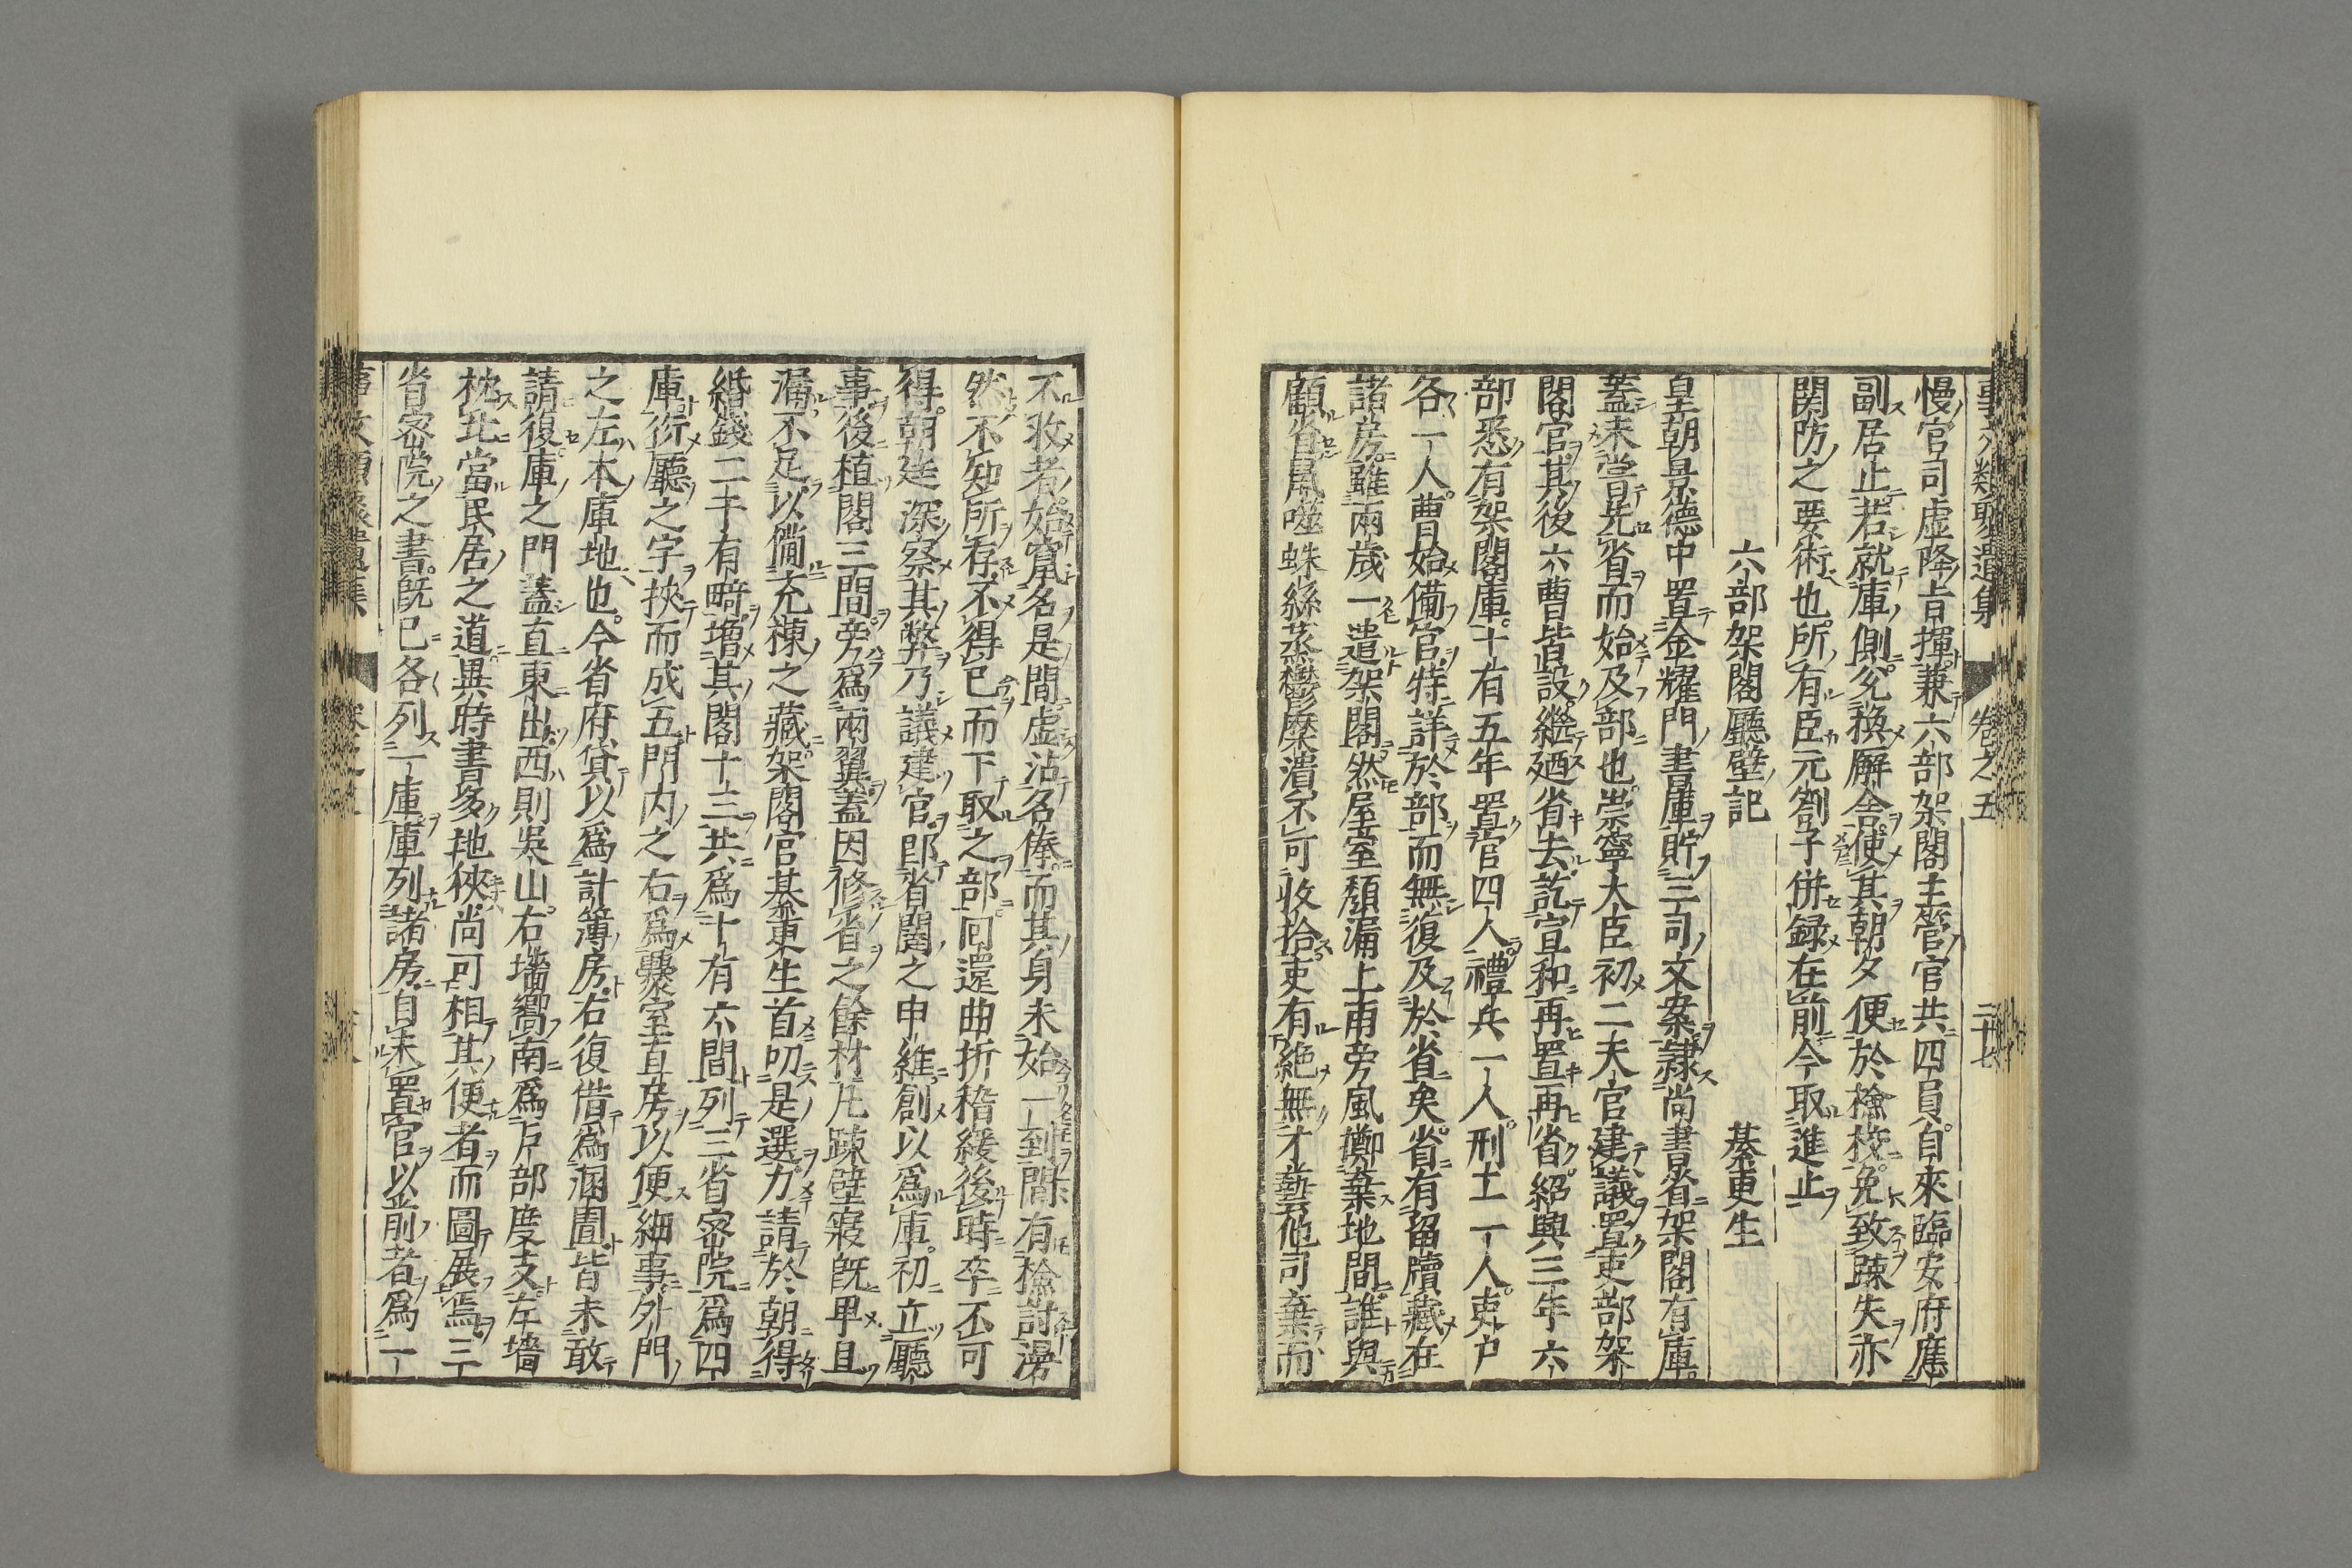 事文類聚遺集 卷之五 二十七
慢官司虚降旨揮兼六部架閣主管官共四員自來臨安府應
副居止若就庫側兊換廨舎使其朝夕便於檢校免致踈失亦
関防之要術也所有臣元劄子併録在前今取進止
六部架閣廳壁記 綦更生
皇朝景德中置金耀門書庫貯三司文案隷尚書省架閣有庫
蓋未嘗先省而始及部也崇寧大臣初二天官建議置吏部架
閣官其後六曹皆設繼廼省去訖宣和再置再省紹興三年六
部悉有架閣庫十有五年置官四人禮兵一人刑工一人吏户
各一人曹始備官特詳於部而無復及於省矣省有留牘藏在
諸房雖兩歳一遣架閣然屋室頽漏上雨旁風擲棄地間誰與
顧省鼠囓蛛絲蒸欝糜潰不可收拾吏有絶無才藝他司棄而
不收者始竄名是間虚沾名俸而其身未始一到間有檢討漫
然不知所存不得已而下取之部回還曲折稽緩後時卒不可
得朝廷深察其弊乃議建官郎省闥之申維創以爲庫初立廳
事後植閣三間旁爲兩翼蓋因修省之餘材凡踈壁寢既卑且
漏不足以備充棟之藏架閣官綦更生首叨是選力請於朝得
緡錢二千有畸増其閣十三共爲十有六間列三省宻院爲四
庫衍廳之字挾而成五門内之右爲爨室直房以便細事外門
之左本庫地也今省府貸以爲計簿房右復借爲溷圊皆未敢
請復庫之門蓋直東出西則吳山右墻嚮南爲户部度支左墻
枕北當民居之道異時書多地狹尚可相其便者而圖展焉三
省宻院之書既已各列一庫庫列諸房自未置官以前者爲一